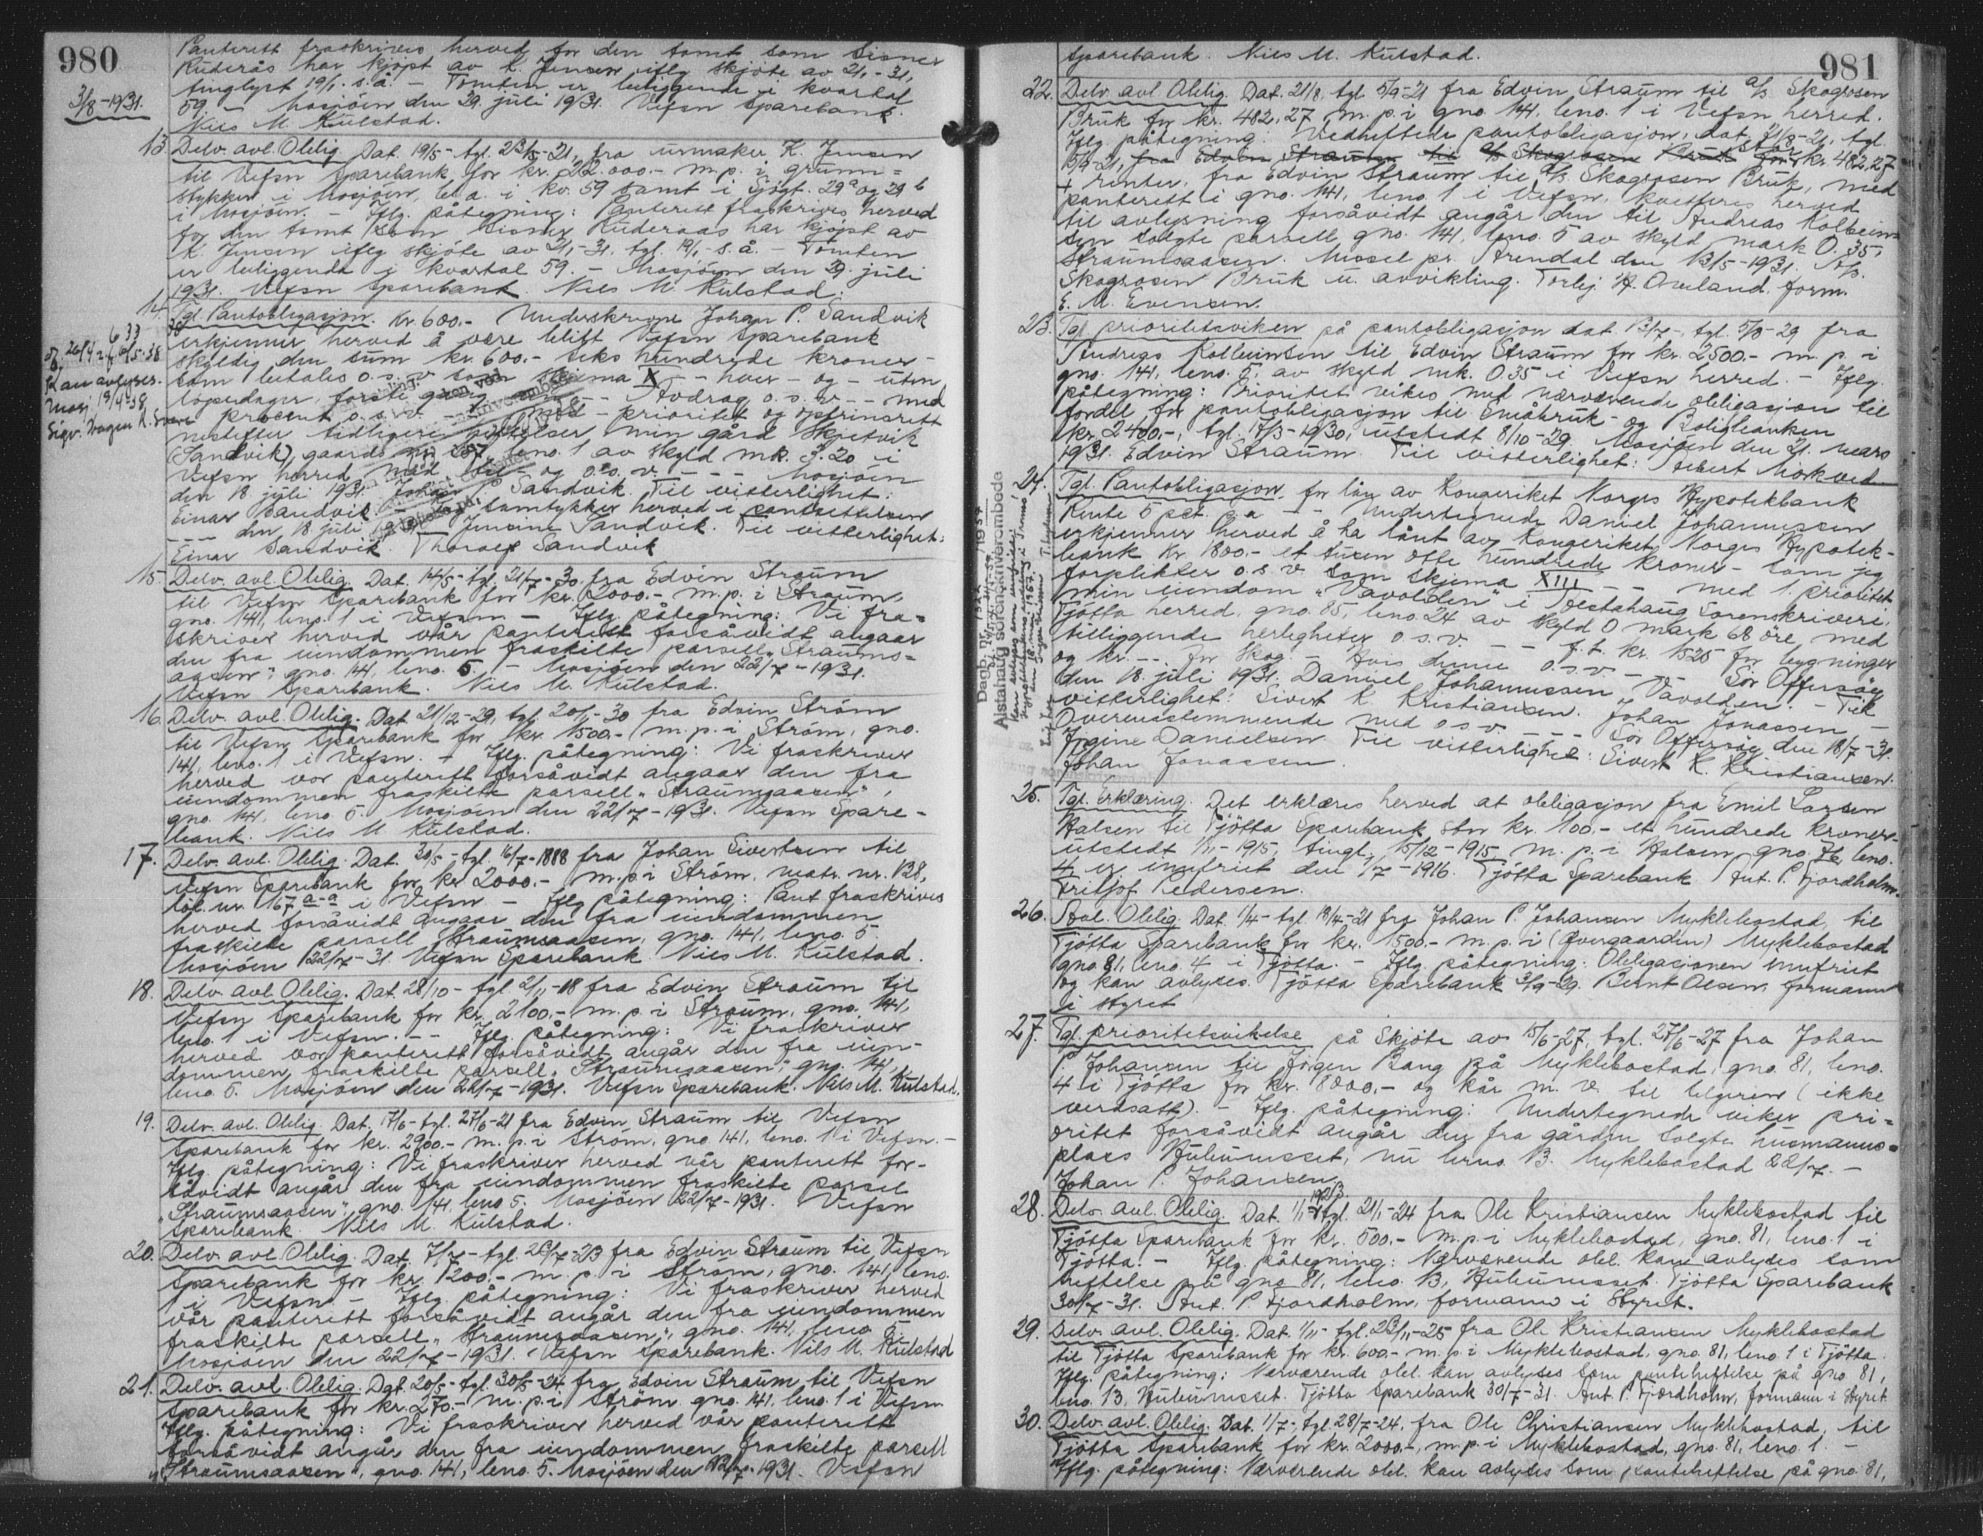 980
Panterett fraskrives herved for den tomt som Signer
Ruderås har kjøpt av K. Jensen iflg skjöte av 2/1-31,
tinglyst 19/1 s.å. - Tomten er beliggende i kvartal
3/8-1931.
59 - Mosjöen den 29. juli 1931. Vefsn Sparebank.
Niels M. Kulstad.
13. Delv. avl. Oblig. Dat. 19/5- tgl. 23/5-21, fra urmaker K. Jensen
til Vefsn Sparebank for kr. 22.000.- m.p. i grunn-
stykker i Mosjöen, bl.a. i kv. 59 samt i Sjögt. 29a og 29b
i Mosjöen. - Iflg. påtegning: Panterett fraskrives herved
for den tomt som Signer Ruderaas har kjøpt av
K. Jensen iflg skjöte av 2/1-31. tgl. 19/1- s.å. - Tomten
er beliggende i kvartal 59. - Mosjöen den 29. juli
1931. Vefsn Sparebank. Niels M Kulstad.
14. Tgl. Pantobligasjon. Kr. 600.- Underskrevne Johan P. Sandvik
erkjenner herved å være blitt Vefsn Sparebank
skyldig den sum kr. 600.- seks hundrede kroner -
som betales o.s.v. som skjema X - - hver - og - uten
löpedager, første gang - - - Avdrag o.s.v. - - med
procent o.s.v. - - med - prioritet og optrinsrett
nestefter tidligere heftelser min gård Skjetvik
(Sandvik), gaards nr. 257, bno. 1 av skyld mk. 3.20 i
Vefsn herred med hus og o.s.v. - - - - Mosjöen
den 18. juli 1931. Johan P. Sandvik. Til vitterlighet:
Einar Sandvik - Jeg samtykker herved i pantsettelsen
- - - den 18. juli 1931. Jensine Sandvik. Til vitterlighet:
Einar Sandvik. Thoralf Sandvik
Kan avlyses.
Mosj. 19/4 38
15. Delv. avl. Oblig. Dat. 14/5- tgl. 21/7-30 fra Edvin Straum
til Vefsn Sparebank for kr. 2000.- m.p. i Straum,
gno. 141, bno. 1 i Vefsn - Iflg. påtegning: Vi fra-
skriver herved vår panterett forsåvidt angaar
den fra eiendommen fraskilte parsell "Straums-
aasen", gno. 141, bno. 5. - Mosjöen den 22/7-1931.
Vefsn Sparebank. Niels M. Kulstad.
16. Delv. avl. Oblig. Dat 21/12-29, tgl. 20/11-30 fra Edvin Ström
til Vefsn Sparebank for kr. 1500.- m.p. i Ström, gno.
141, bno. 1 i Vefsn. - Iflg. påtegning: Vi fraskriver
herved vor panterett forsåvidt angaar den fra
eiendommen fraskilte parsell "Straumsaasen",
gno. 141, bno. 5. Mosjöen den 22/7-1931. Vefsn Spare-
bank. Niels M Kulstad.
17. Delv. avl. Oblig. Dat. 30/5- tgl. 16/7-1888 fra Johan Sivertsen til
Vefsn Sparebank for kr. 2000.- m.p. i Ström, matr. nr. 128,
löp. nr. 167 a-a i Vefsn - Iflg. påtegning: Pant fraskrives
herved forsåvidt angaar den fra eiendommen
fraskilte parsell Straumsaasen, gno. 141, bno. 5.
Mosjöen 22/7-31 Vefsn Sparebank Niels M. Kulstad.
18. Delv. avl. Oblig. Dat. 28/10- tgl. 2/11-18 fra Edvin Straum til
Vefsn Sparebank for kr. 2100.- m.p. i Straum, gno. 141,
bno. 1 i Vefsn. - - Iflg. påtegning: Vi fraskriver
herved vor panterett forsåvidt angår den fra eien-
dommen fraskilte parsell "Straumsaasen", gno. 141,
bno. 5. Mosjöen den 22/7-1931. Vefsn Sparebank. Niels M. Kulstad.
19. Delv. avl. Oblig. Dat. 17/6- tgl. 27/6-21 fra Edvin Straum til Vefsn
Sparebank for kr. 2900.- m.p. i Ström, gno. 141, bno. 1 i Vefsn. -
Iflg. påtegning: Vi fraskriver herved vår panterett for-
såvidt angår den fra eiendommen fraskilte parsel
"Straumsaasen", gno. 141, bno 5. Mosjöen 22/7-1931. Vefsn
Sparebank Niels M. Kulstad.
20. Delv. avl. Oblig. Dat. 7/7- tgl. 20/7-23 fra Edvin Straum til Vefsn
Sparebank for kr. 1200.- m.p. i Ström, gno. 141, bno.
1 i Vefsn - Iflg. påtegning: Vi fraskriver herved
vår panterett forsåvidt angår den fra eiendommen
fraskilte parsell "Straumsaasen", gno. 141, bno. 5.
Mosjöen den 22/7-1931. Vefsn Sparebank. Niels M. Kulstad
21. Delv. avl. Oblig. Dat. 20/5- tgl. 30/5-24 fra Edvin Straum til Vefsn
Sparebank for kr. 270.- m.p. i Ström gno. 141, bno. 1 i Vefsn
Iflg. påtegning: Vi fraskriver herved vår panterett
forsåvidt angår den fra eiendommen fraskilte parsell
"Straumsaasen", gno. 141, bno. 5. Mosjöen den 22/7-1931. Vefsn
981
Sparebank. Niels M. Kulstad.
22. Delv. avl. Oblig. Dat. 21/8. tgl. 5/9-21 fra Edvin Straum til A/S Skogrosen
Bruk for kr. 482,27 m.p. i gno. 141, bno. 1 i Vefsn herred.
Iflg. påtegning: Vedheftede pantobligasjon, dat. 21/8-21, tgl.
5/9-21, fra Edvin Straum til A/S Skogrosen Bruk stor kr. 482.27
+ renter, fra Edvin Straum til A/S Skogrosen Bruk, med
panterett i gno. 141, bno. 1 i Vefsn, kvitteres herved
til avlysning forsåvidt angår den til Andreas Kolbein-
sen solgte parsell, gno. 141, bno. 5 av skyld mark 0.35,
Straumsaasen. Missel pr. Arendal den 13/5-1931. A/S.
Skogrosen Bruk u. avvikling. Torbj. H. Aveland. form.
E. M. Evensen.
23. Tgl. prioritetsviken på pantobligasjon dat. 13/7-, tgl. 5/8-29 fra
Andreas Kolbeinsen til Edvin Straum for kr. 2500.- m.p. i
gno. 141, bno. 5, av skyld mk. 0.35 i Vefsn herred. - Iflg.
påtegning: Prioritet vikes med nærværende obligasjon til
fordel for pantobligasjon til Småbruk- og Boligbanken
kr. 2400.-, tgl. 17/3-1930, utstedt 8/10-29. Mosjöen den 21. mars
1931. Edvin Straum. Til vitterlighet: Albert Mokved
24. Tgl. Pantobligasjon for lån av Kongeriket Norges Hypotekbank
Rente 5 pct. p.a. - - Undertegnede Daniel Johannessen
erkjenner herved å ha lånt av Kongeriket Norges Hypotek-
bank kr. 1800.- et tusen otte hundrede kroner - som jeg
forplikter o.s.v. som skjema XIII - - - med 1. prioritet
min eiendom "Vavolden" i Alstahaug Sorenskriveri,
Tjötta herred, gno. 85, bno. 24 av skyld 0 mark 68 öre, med
tilliggende herligheter o.s.v. - - - f.t. kr. 1525 for bygninger
og kr. - - for skog. - Hvis denne o.s.v. - - Sör Offersöy
den 18. juli 1931. Daniel Johannessen, Vavolden. - Til
vitterlighet: Sivert K. Kristiansen. Johan Jonassen -
Overensstemmende med o.s.v. - - - Sör Offersöy den 18/7-31.
Jorgine Danielsen. Til vitterlighet: Sivert K. Kristiansen.
Johan Jonassen.
Alstahaug sorenskriverembede
25. Tgl. Erklæring. Det erklæres herved at obligasjon fra Emil Larsen
Halsen til Tjötta Sparebank stor kr. 100.- et hundrede kroner -
utstedt 1/11-1915, tingl. 15/12-1915 m.p. i Halsen, gno. 76, bno.
4 er innfriet den 1/7-1916. Tjötta Sparebank Ant. P. Fjordholm.
Fritjof Pedersen.
26. Avl. Oblig. Dat. 1/4- tgl. 18/4-21 fra Johan P. Johansen Myklebostad, til
Tjötta Sparebank for kr. 1500.- m.p. i (Övergaarden) Myklebostad
gno. 81, bno. 4 i Tjötta. - Iflg. påtegning: Obligasjonen innfriet
og kan avlyses. Tjötta Sparebank 3/9-29. Bernt Olsen, formann
i styret
27. Tgl. prioritetsvikelse på Skjöte av 15/6-27, tgl. 27/6-27 fra Johan
P. Johansen til Jörgen Bang på Myklebostad, gno. 81, bno.
4 i Tjötta for kr. 8000,- og kår m. v. til selgeren (ikke
verdsatt). - Iflg. påtegning: Undertegnede viker pri-
oritet forsåvidt angår den fra gården solgte husmanns-
plass Huleneset, nu bno. 13. Myklebostad 22/7. -
Johan P. Johansen.
28. Delv. avl. Oblig. Dat. 1/11-1923 tgl. 21/1-24 fra Ole Kristiansen Myklebostad til
Tjötta Sparebank for kr. 500.- m.p. i Myklebostad, gno. 81, bno. 1 i
Tjötta. - Iflg. påtegning: Nærværende obl. kan avlyses som
heftelse på gno 81, bno. 13, Huleneset. Tjötta Sparebank
30/7-31. Ant. P. Fjordholm, formann i Styret.
29. Delv. avl. Oblig. Dat. 1/11- tgl. 23/11-25 fra Ole Kristiansen Myklebostad
til Tjötta Sparebank for kr. 600.- m.p. i Myklebostad, gno. 81, bno. 1 i Tjötta.
Iflg. påtegning: Nærværende obl. kan avlyses som panteheftelse på gno. 81,
bno. 13, Huleneset. Tjötta Sparebank 30/7-31. Ant. P. Fjordholm, formann i Styret
30. Delv. avl. Oblig. Dat. 1/7-, tgl. 28/7-24, fra Ole Christiansen Myklebostad, til
Tjötta Sparebank for kr. 2000.-, m.p. i Myklebostad, gno. 81, bno. 1. -
Iflg. påtegning: Nærværende obl. kan avlyses som panteheftelse på gno. 81,